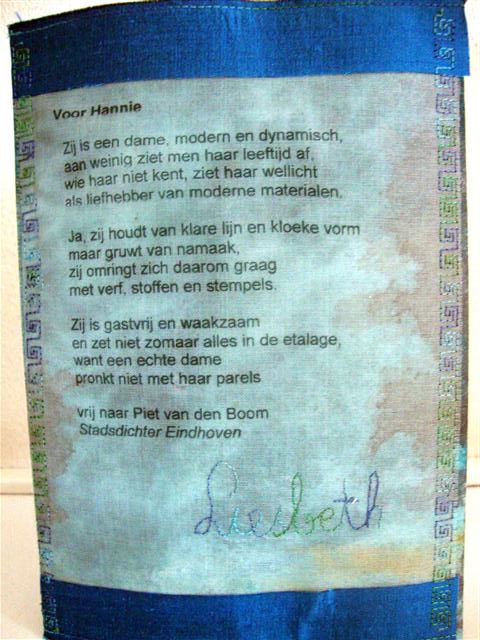 Voor Hannie
Zij is een dame, modern en dynamisch,
aan weinig ziet men haar leeftijd af,
wie haar niet kent, ziet haar wellicht
als liefhebber van moderne materialen.
Ja, zij houdt van klare lijn en kloeke vorm
maar gruwt van namaak,
zij omringt zich daarom graag
met verf, stoffen en stempels.
Zij is gastvrij en waakzaam
en zet niet zomaar alles in de etalage,
want een echte dame
pronkt niet met haar parels
vrij naar Piet van den Boom
Stadsdichter Eindhoven
Liesbeth